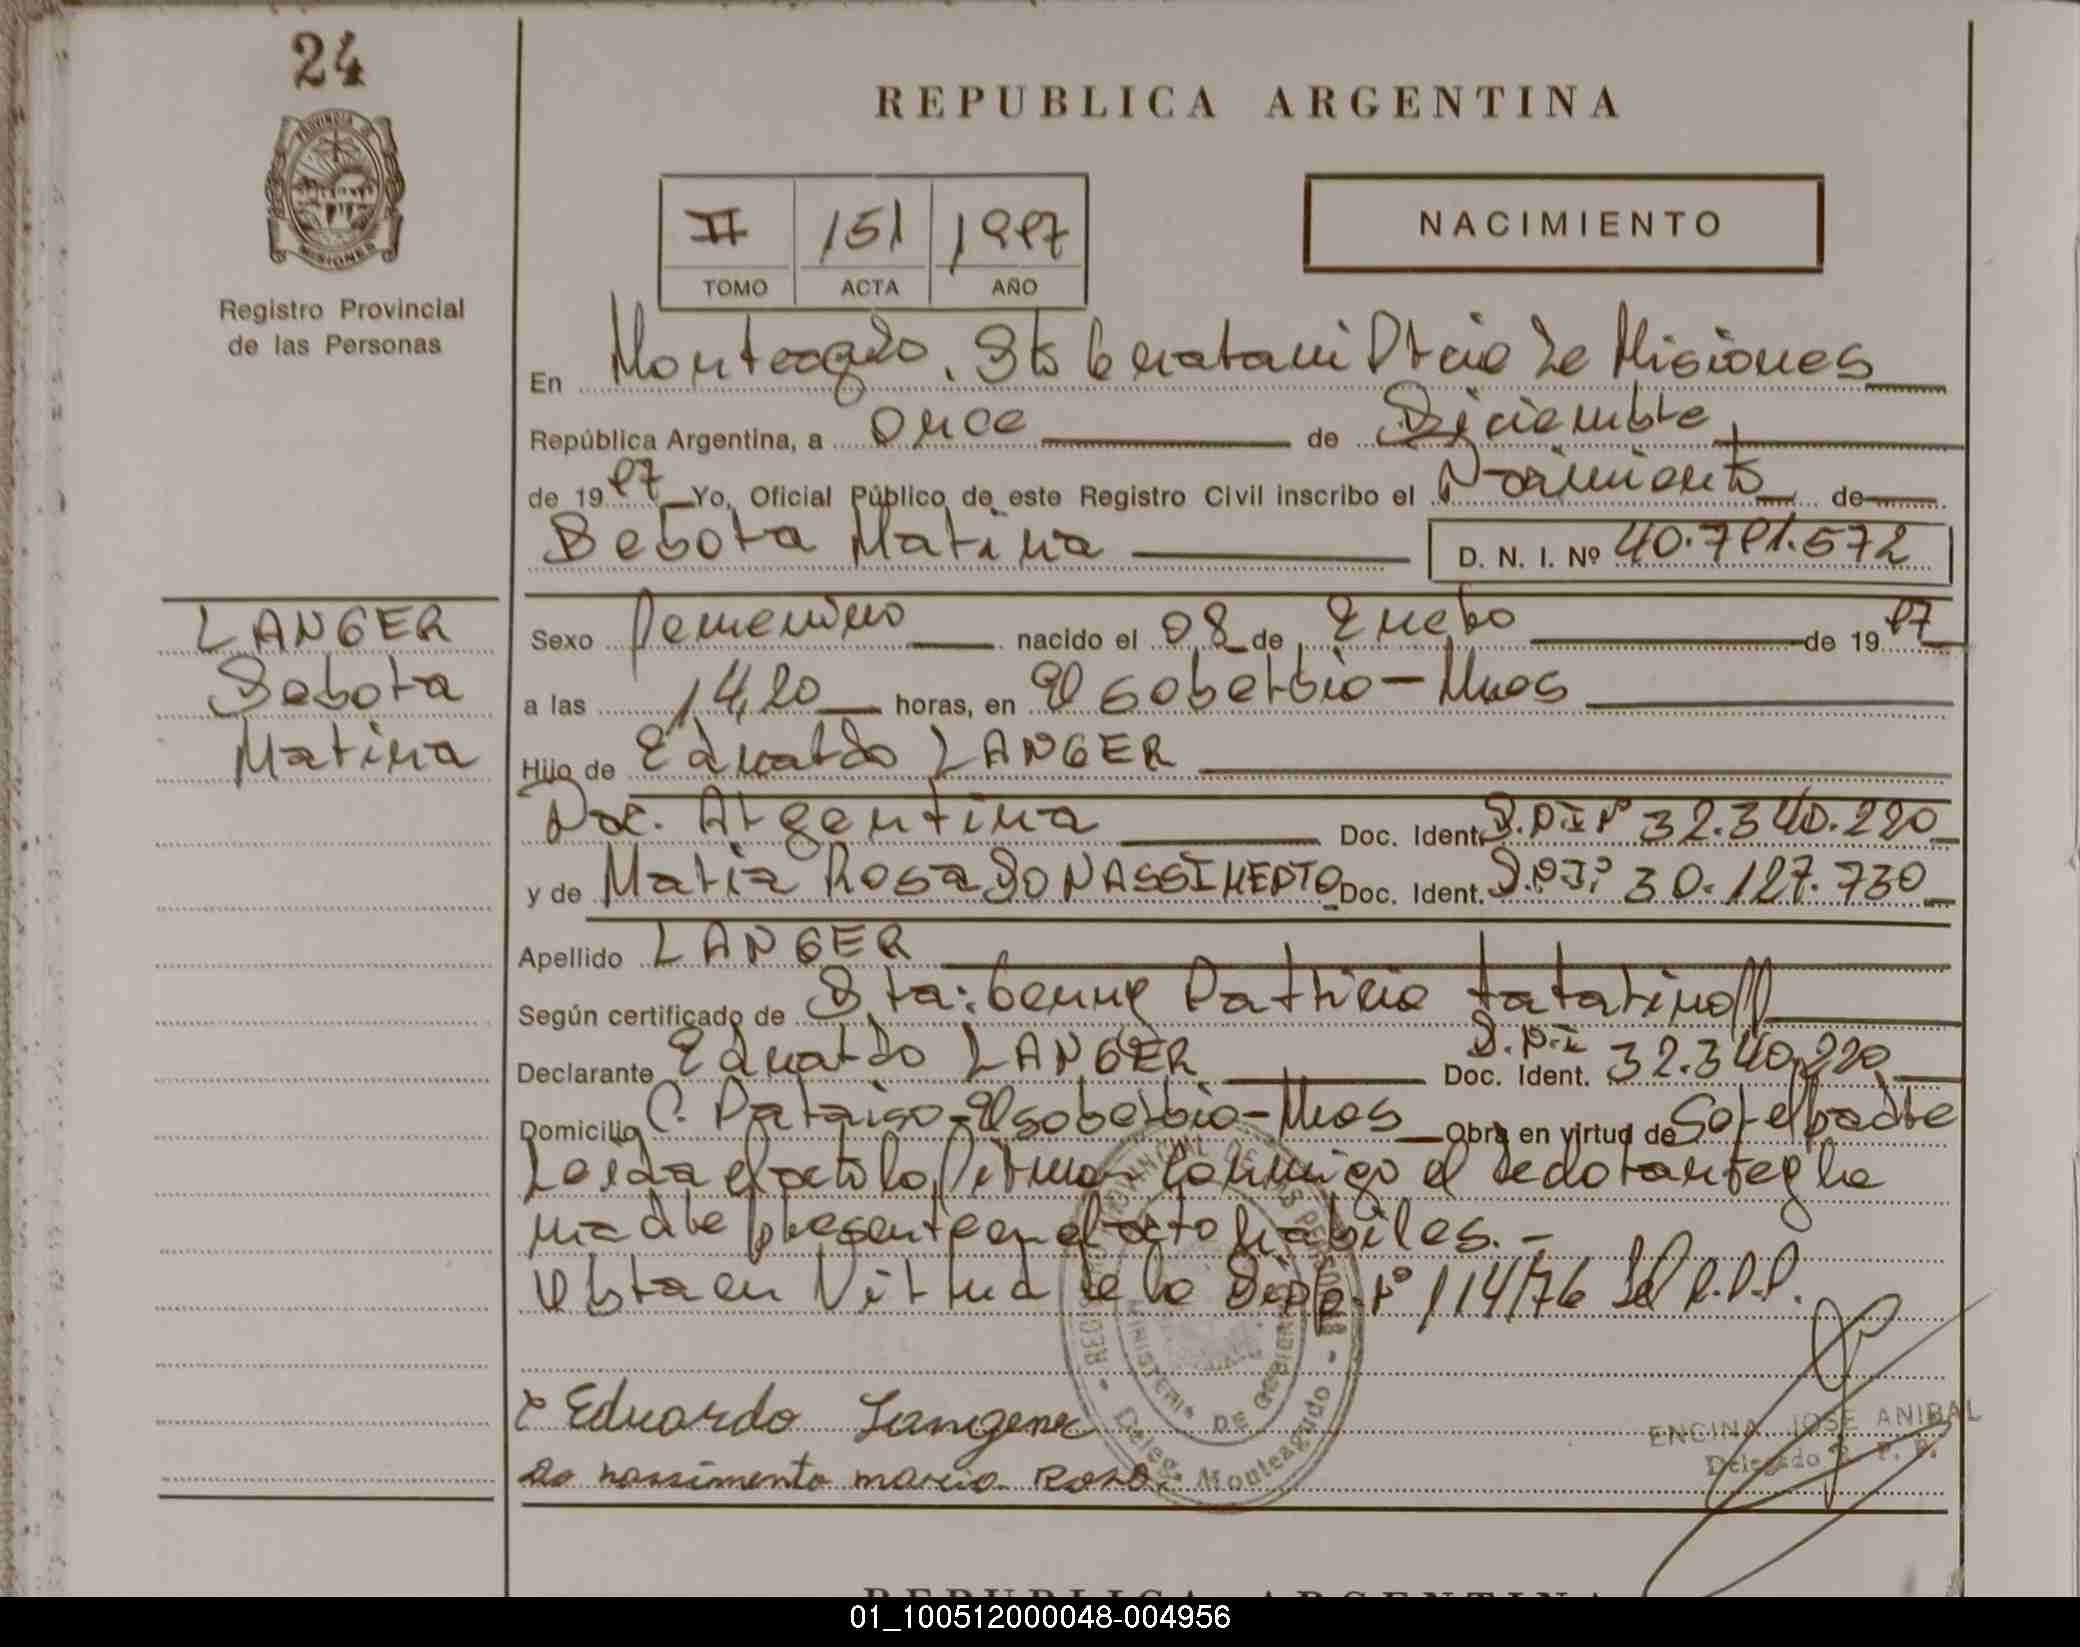 24
PROVINCIA DE
MISIONES
Registro Provincial
de las Personas
REPUBLICA ARGENTINA
II 151 1997
TOMO ACTA AÑO
NACIMIENTO
En Monteagudo, Dto Guarani Pcia de Misiones
República Argentina, a Once de Diciembre
de 1997 Yo, Oficial Público de este Registro Civil inscribo el Nacimiento de
Debora Marina D. N. I. Nº 40.791.572
LANGER
Debora
Marina
Sexo Femenino nacido el 08 de Enero de 1997
a las 14,20 horas, en El soberbio - Mnes
Hijo de Eduardo LANGER
Nac. Argentina Doc. Ident. D.N.I Nº 32.340.220
y de Maria Rosa DO NASSIMENTO Doc. Ident. D.N.I. 30.127.730
Apellido LANGER
Según certificado de Dta: Patricia
Declarante Eduardo LANGER Doc. Ident. D.N.I 32.340.220
Domicilio C. Paraiso - El soberbio - Mnes Obra en virtud de Ser el padre
Leida el acta la firman conmigo el declarante y la
madre presente en el acto habiles. -
Obra en Virtud de la Disp. Nº 114/76 del R.P.P.
Eduardo Langener
do nassimento maria Rosa.
MINISTERIO DE GOBIERNO
Deleg. Monteagudo
ENCINA JOSE ANIBAL
Delegado R. P. P.
REPUBLICA ARGENTINA
01_100512000048-004956